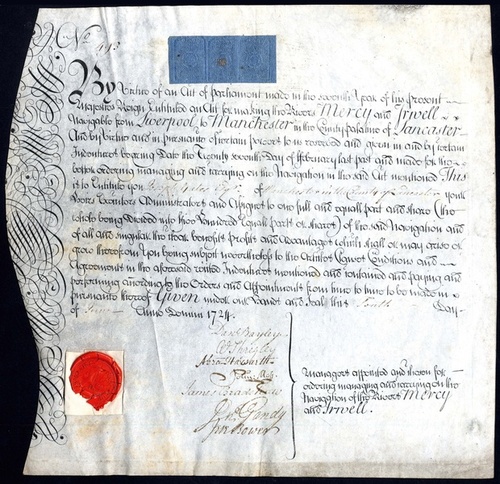 No. 443
By Virtue of an Act of Parliament made in the Seventh Year of his present
Majesties Reign Entituled an Act for making the Rivers Mercy and Irwell
Navigable from Liverpool to Manchester in the County palatine of Lancaster
And by virtue and in pursuance of certain powers to us reserved and given in and by certain
Indentures bearing Date the Twenty seventh Day of February last past and made for the
better ordering managing and carrying on the Navigation in the said Act mentioned This
is to Entitule you Esqr. of Manchester in the County of Lancaster your
Heirs Executors Administrators and Assignes to one full and equall part and share (the
whole being Divided into five Hundred Equall parts or shares) of the said Navigation and
of all and singular the stock benefits profits and advantages which shall or may arise or
grow therefrom You being subject nevertheless to the Articles Covenants Conditions and
Agreements in the aforesaid recited Indentures mentioned and contained and paying and
performing according to the Orders and Appointments from time to time to be made in
pursuance thereof Given under our Hands and Seal this Tenth Day
of June Anno Domini 1724.
Bayley
James Bradshaw
Jos. Gandy
Jno. Bower
Managers appointed and chosen for
ordering managing and carrying on the
Navigation of the Rivers Mercy
and Irwell.